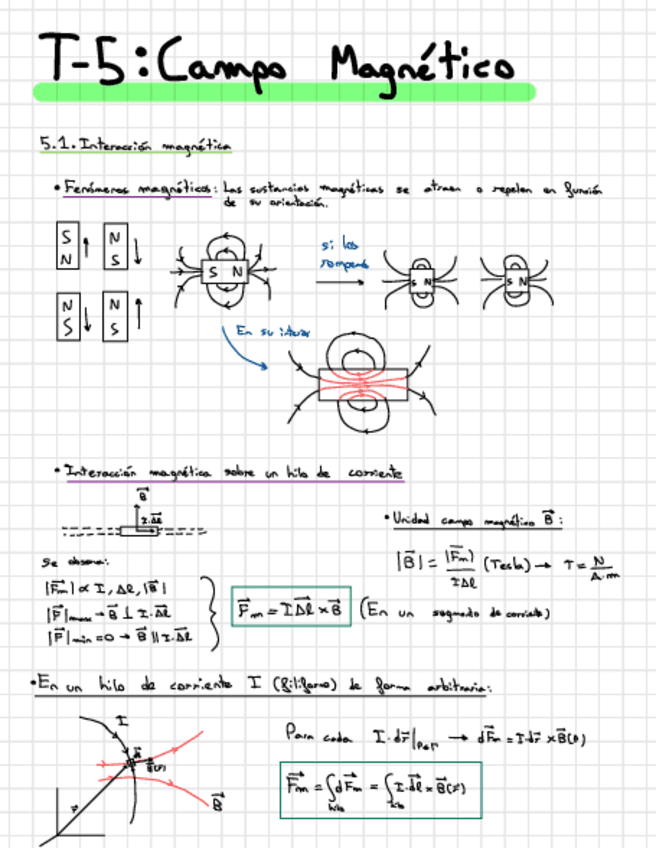 T-5: Campo Magnético
5.1. Interacción magnética
• Fenómenos magnéticos: Las sustancias magnéticas se atraen o repelen en función
de su orientación.
S N
N S
S N
si los
rompemos
S N S N
N N
S S
En su interior
• Interacción magnética sobre un hilo de corriente
B⃗
I·Δl⃗
• Unidad campo magnético B⃗:
Se observa:
|B⃗| = |F⃗m| / IΔl (Tesla) → T = N / A·m
|F⃗m| ∝ I, Δl, |B⃗|
|F⃗|max → B⃗ ⊥ I·Δl⃗
F⃗m = IΔl⃗ × B⃗ (En un segmento de corriente)
|F⃗|min = 0 → B⃗ || I·Δl⃗
• En un hilo de corriente I (filiforme) de forma arbitraria:
I
Para cada I·dr⃗|P∈Γ → dF⃗m = I·dr⃗ × B⃗(P)
B⃗(P)
F⃗m = ∫hilo dF⃗m = ∫hilo I·dl⃗ × B⃗(r⃗)
r⃗
B⃗